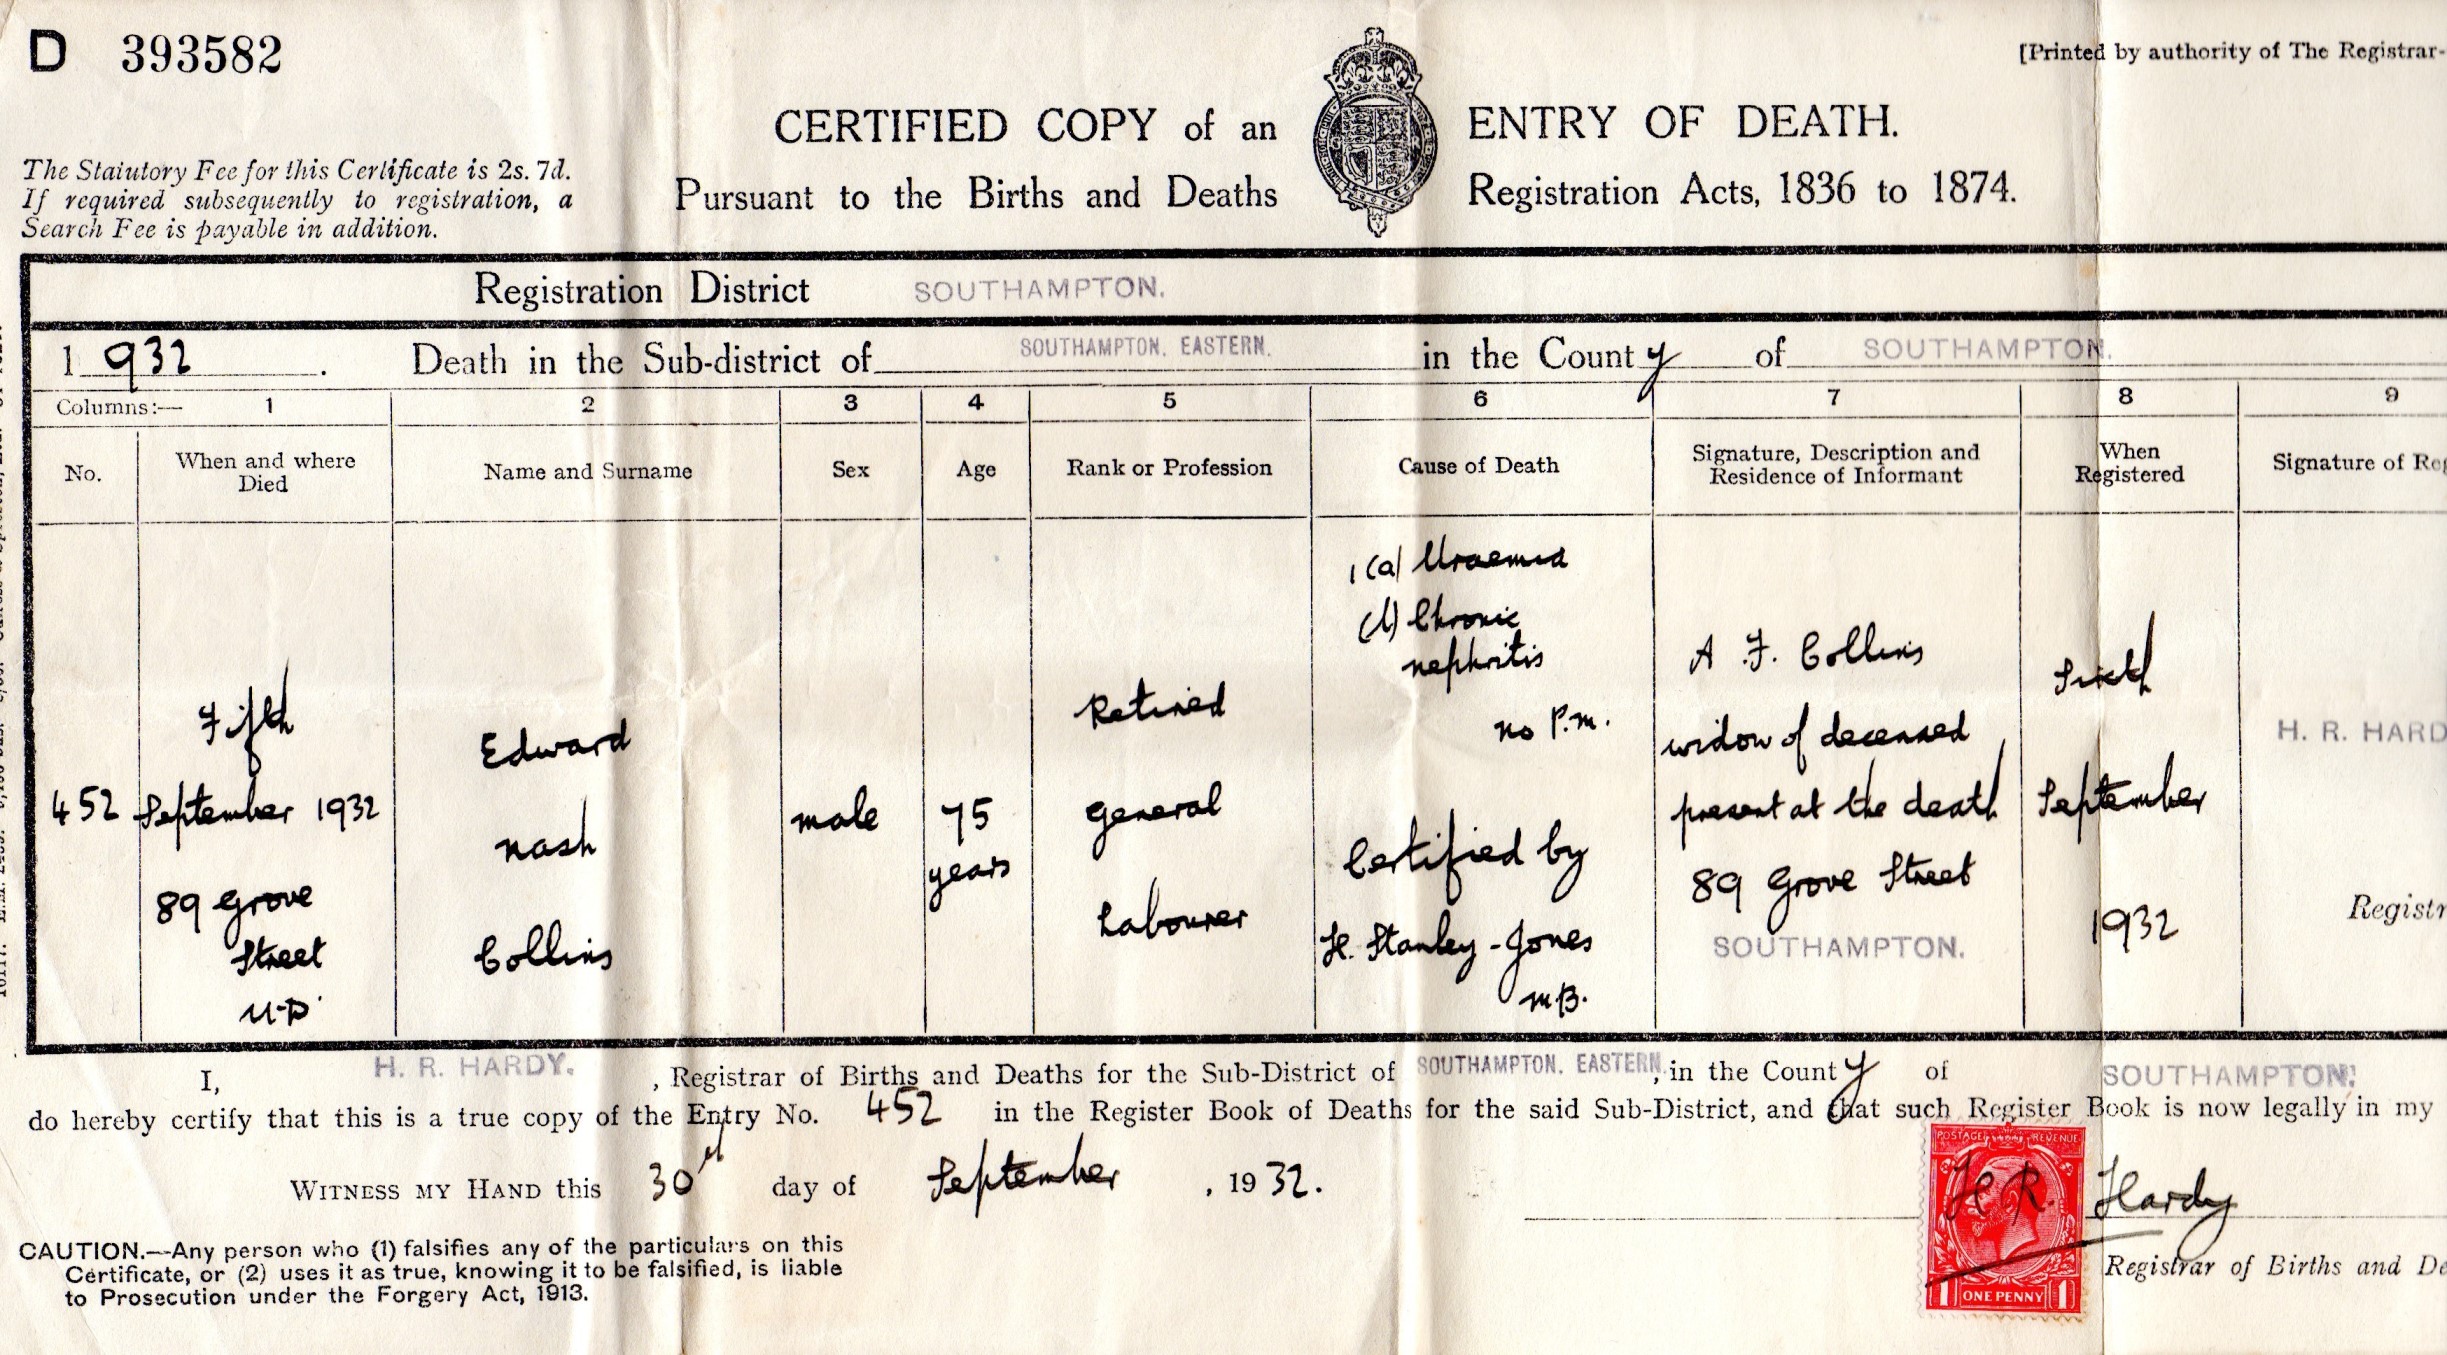 D 393582
[Printed by authority of The Registrar-
CERTIFIED COPY of an ENTRY OF DEATH.
Pursuant to the Births and Deaths Registration Acts, 1836 to 1874.
The Statutory Fee for this Certificate is 2s. 7d.
If required subsequently to registration, a
Search Fee is payable in addition.
Registration District SOUTHAMPTON.
1 932. Death in the Sub-district of SOUTHAMPTON. EASTERN. in the County of SOUTHAMPTON.
Columns:— 1 2 3 4 5 6 7 8 9
No.
When and where
Died
Name and Surname
Sex
Age
Rank or Profession
Cause of Death
Signature, Description and
Residence of Informant
When
Registered
Signature of Reg
452
Fifth
September 1932
89 Grove
Street
U.D.
Edward
Nash
Collins
male
75
years
Retired
General
Labourer
1 (a) Uraemia
(b) Chronic
nephritis
no P.M.
Certified by
H. Stanley-Jones
M.B.
A. F. Collins
widow of deceased
present at the death
89 Grove Street
SOUTHAMPTON.
Sixth
September
1932
H. R. HARD
Registr
I, H. R. HARDY. , Registrar of Births and Deaths for the Sub-District of SOUTHAMPTON. EASTERN, in the County of SOUTHAMPTON.
do hereby certify that this is a true copy of the Entry No. 452 in the Register Book of Deaths for the said Sub-District, and that such Register Book is now legally in my
WITNESS MY HAND this 30th day of September, 1932.
POSTAGE REVENUE
H. R. Hardy
1 ONE PENNY 1
Registrar of Births and De
CAUTION.—Any person who (1) falsifies any of the particulars on this
Certificate, or (2) uses it as true, knowing it to be falsified, is liable
to Prosecution under the Forgery Act, 1913.